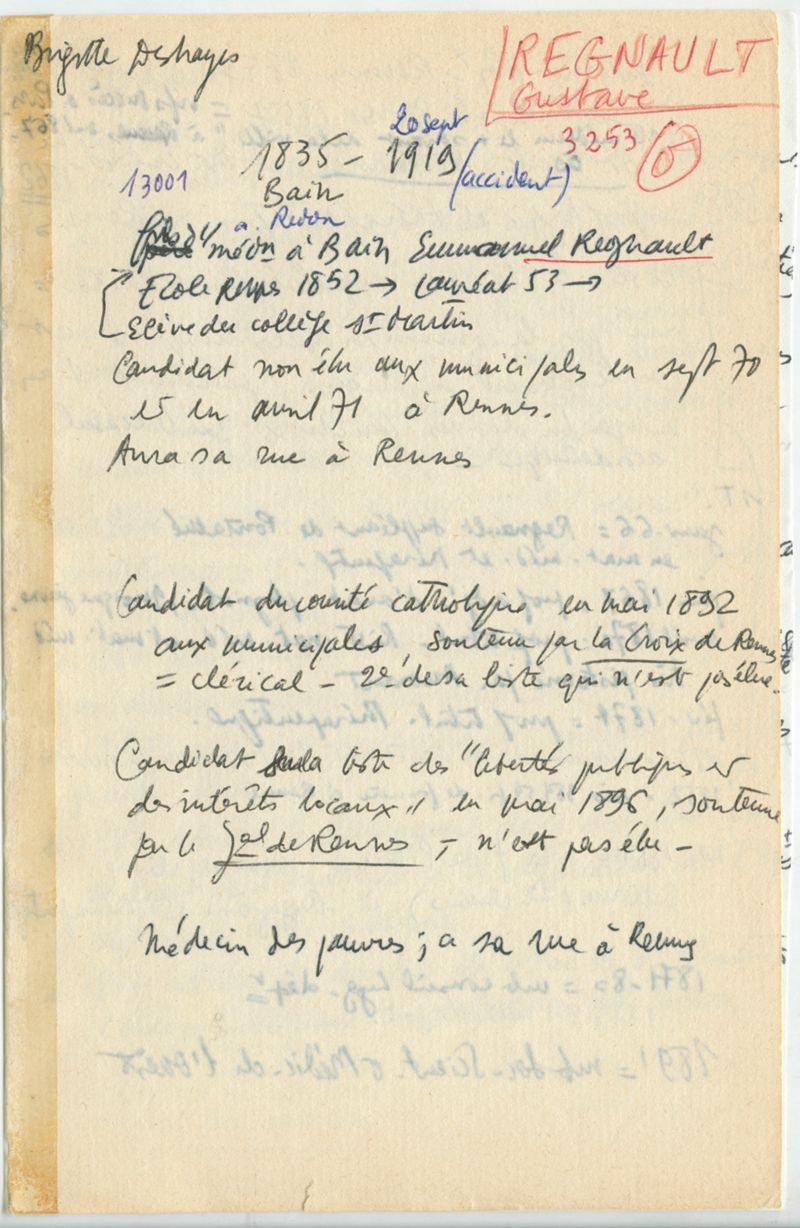 Brigitte Deshayes
REGNAULT
Gustave
3253
20 sept
1835 - 1919 (accident)
13001
Bain
a. Redon
fils d' médn à Bain Emmanuel Regnault
Ecole Rennes 1852 → Lauréat 53 →
Elève du collège St Martin
Candidat non élu aux municipales en sept 70
et en avril 71 à Rennes.
Aura sa rue à Rennes
Candidat du comité catholique en mai 1892
aux municipales, soutenu par la Croix de Rennes
= clérical - 2e de sa liste qui n'est pas élue.
Candidat sur la liste des "libertés publiques et
des intérêts locaux" en mai 1896, soutenue
par le Jal de Rennes, - n'est pas élu -
Médecin des pauvres ; a sa rue à Rennes